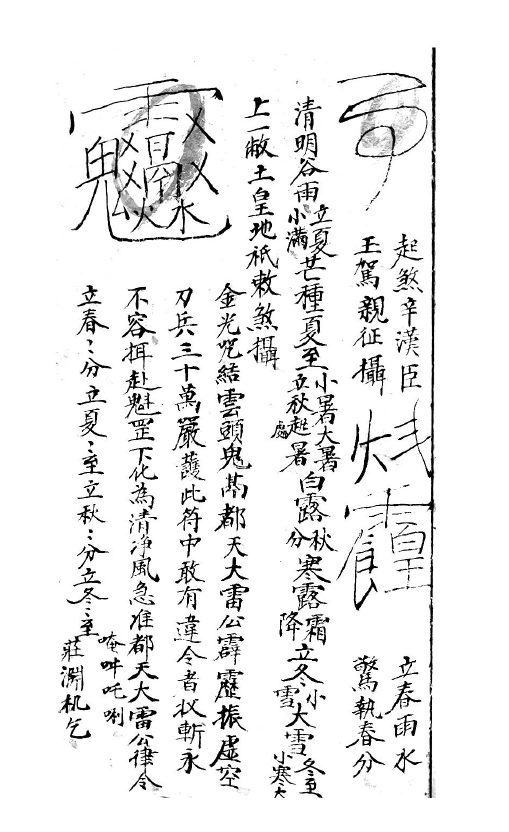 起煞辛漢臣
王駕親征攝
立春雨水
驚執春分
清明谷雨立夏小滿芒種夏至小暑大暑立秋處暑白露秋分寒露霜降立冬小雪大雪冬至小寒大
上一敝土皇地祇敕煞攝
金光咒結雲頭鬼 都天大雷公霹靂振虛空
刀兵三十萬嚴護此符中敢有違令者收斬永
不容揖赴魁罡下化為清淨風急准都天大雷公律令
唵吽吒唎
立春〻分立夏〻至立秋〻分立冬〻至
莊淵机乞